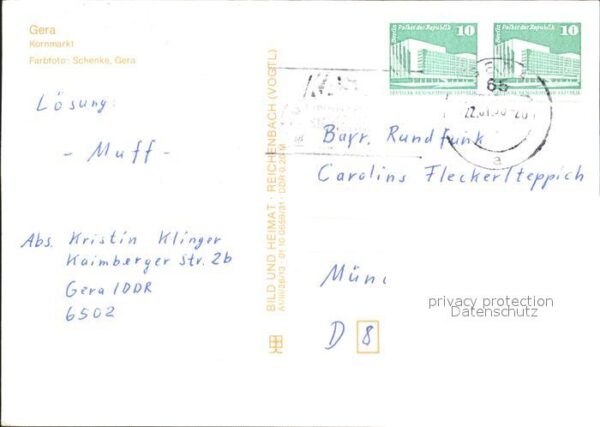 Gera
Kornmarkt
Farbfoto: Schenke, Gera
Lösung:
- Muff -
Abs. Kristin Klinger
Kaimberger Str. 2b
Gera / DDR
6502
BILD UND HEIMAT · REICHENBACH (VOGTL)
DDR 0,20 M
Berlin Palast der Republik 10
DEUTSCHE DEMOKRATISCHE REPUBLIK
Berlin Palast der Republik 10
DEUTSCHE DEMOKRATISCHE REPUBLIK
65
a
Bayr. Rundfunk
Carolins Fleckerlteppich
Münc
D 8
privacy protection
Datenschutz